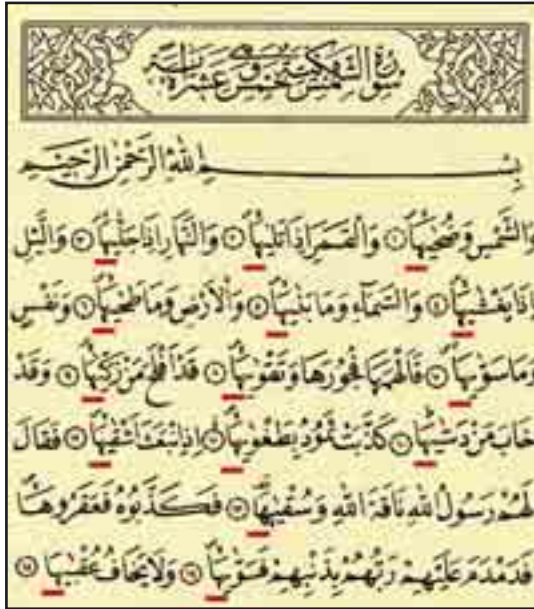 سُورَةُ الشَّمْسِ مَكِّيَّةٌ وَهِيَ خَمْسَ عَشْرَةَ اٰيَةً
بِسْمِ اللّٰهِ الرَّحْمٰنِ الرَّحِيمِ
وَالشَّمْسِ وَضُحٰيهَاۙ ١ وَالْقَمَرِ اِذَا تَلٰيهَاۙ ٢ وَالنَّهَارِ اِذَا جَلّٰيهَاۙ ٣ وَالَّيْلِ
اِذَا يَغْشٰيهَاۙ ٤ وَالسَّمَٓاءِ وَمَا بَنٰيهَاۙ ٥ وَالْاَرْضِ وَمَا طَحٰيهَاۙ ٦ وَنَفْسٍ
وَمَا سَوّٰيهَاۙ ٧ فَاَلْهَمَهَا فُجُورَهَا وَتَقْوٰيهَاۙ ٨ قَدْ اَفْلَحَ مَنْ زَكّٰيهَاۙ ٩ وَقَدْ
خَابَ مَنْ دَسّٰيهَاۜ ١٠ كَذَّبَتْ ثَمُودُ بِطَغْوٰيهَاۙ ١١ اِذِ انْبَعَثَ اَشْقٰيهَاۙ ١٢ فَقَالَ
لَهُمْ رَسُولُ اللّٰهِ نَاقَةَ اللّٰهِ وَسُقْيٰيهَاۜ ١٣ فَكَذَّبُوهُ فَعَقَرُوهَاۙ
فَدَمْدَمَ عَلَيْهِمْ رَبُّهُمْ بِذَنْبِهِمْ فَسَوّٰيهَاۙ ١٤ وَلَا يَخَافُ عُقْبٰيهَا ١٥